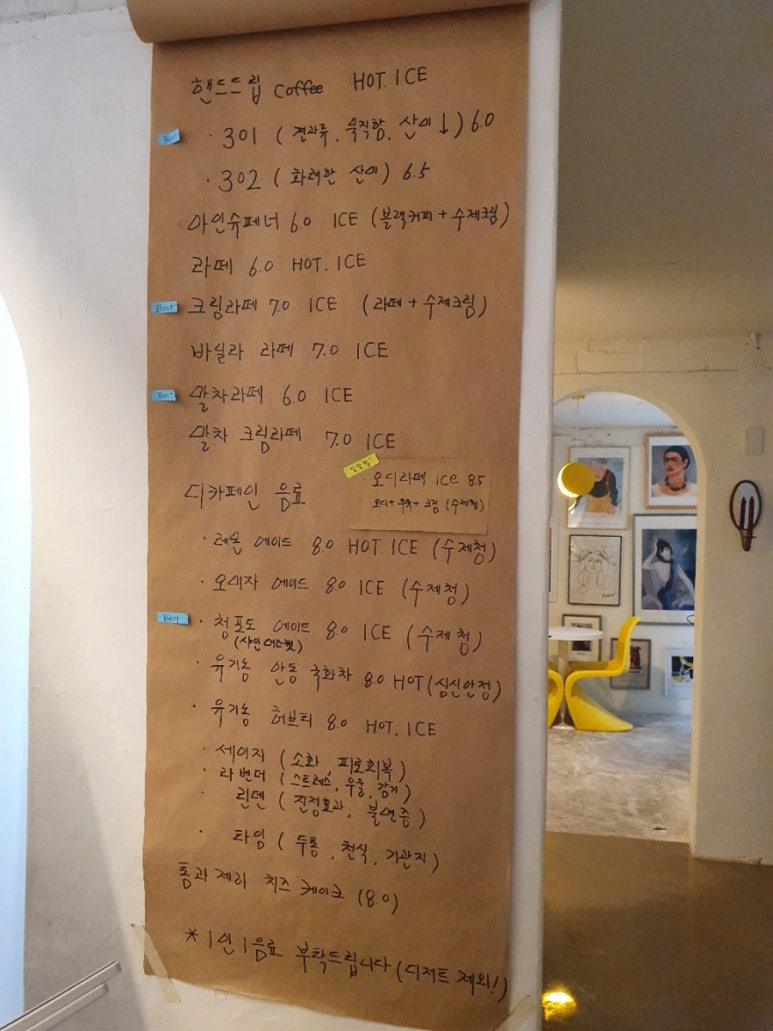 핸드드립 Coffee HOT. ICE
Best
· 301 (견과류, 묵직함, 산미↓) 6.0
· 302 (화려한 산미) 6.5
아인슈페너 6.0 ICE (블랙커피 + 수제크림)
라떼 6.0 HOT. ICE
Best
크림라떼 7.0 ICE (라떼 + 수제크림)
바닐라 라떼 7.0 ICE
Best
말차라떼 6.0 ICE
말차 크림라떼 7.0 ICE
· 오디라떼 ice 8.5
오디 + 우유 + 크림 (수제청)
디카페인 음료
· 레몬 에이드 8.0 HOT. ICE (수제청)
· 오미자 에이드 8.0 ICE (수제청)
Best
· 청포도 에이드 8.0 ICE (수제청)
(샤인머스켓)
· 유기농 안동 국화차 8.0 HOT (심신안정)
· 유기농 허브티 8.0 HOT. ICE
· 세이지 (소화, 피로회복)
· 라벤더 (스트레스, 우울, 감기)
· 린덴 (진정효과, 불면증)
· 타임 (두통, 천식, 기관지)
통과 제리 치즈 케이크 (8.0)
* 1인 1음료 부탁드립니다 (디저트 제외!)